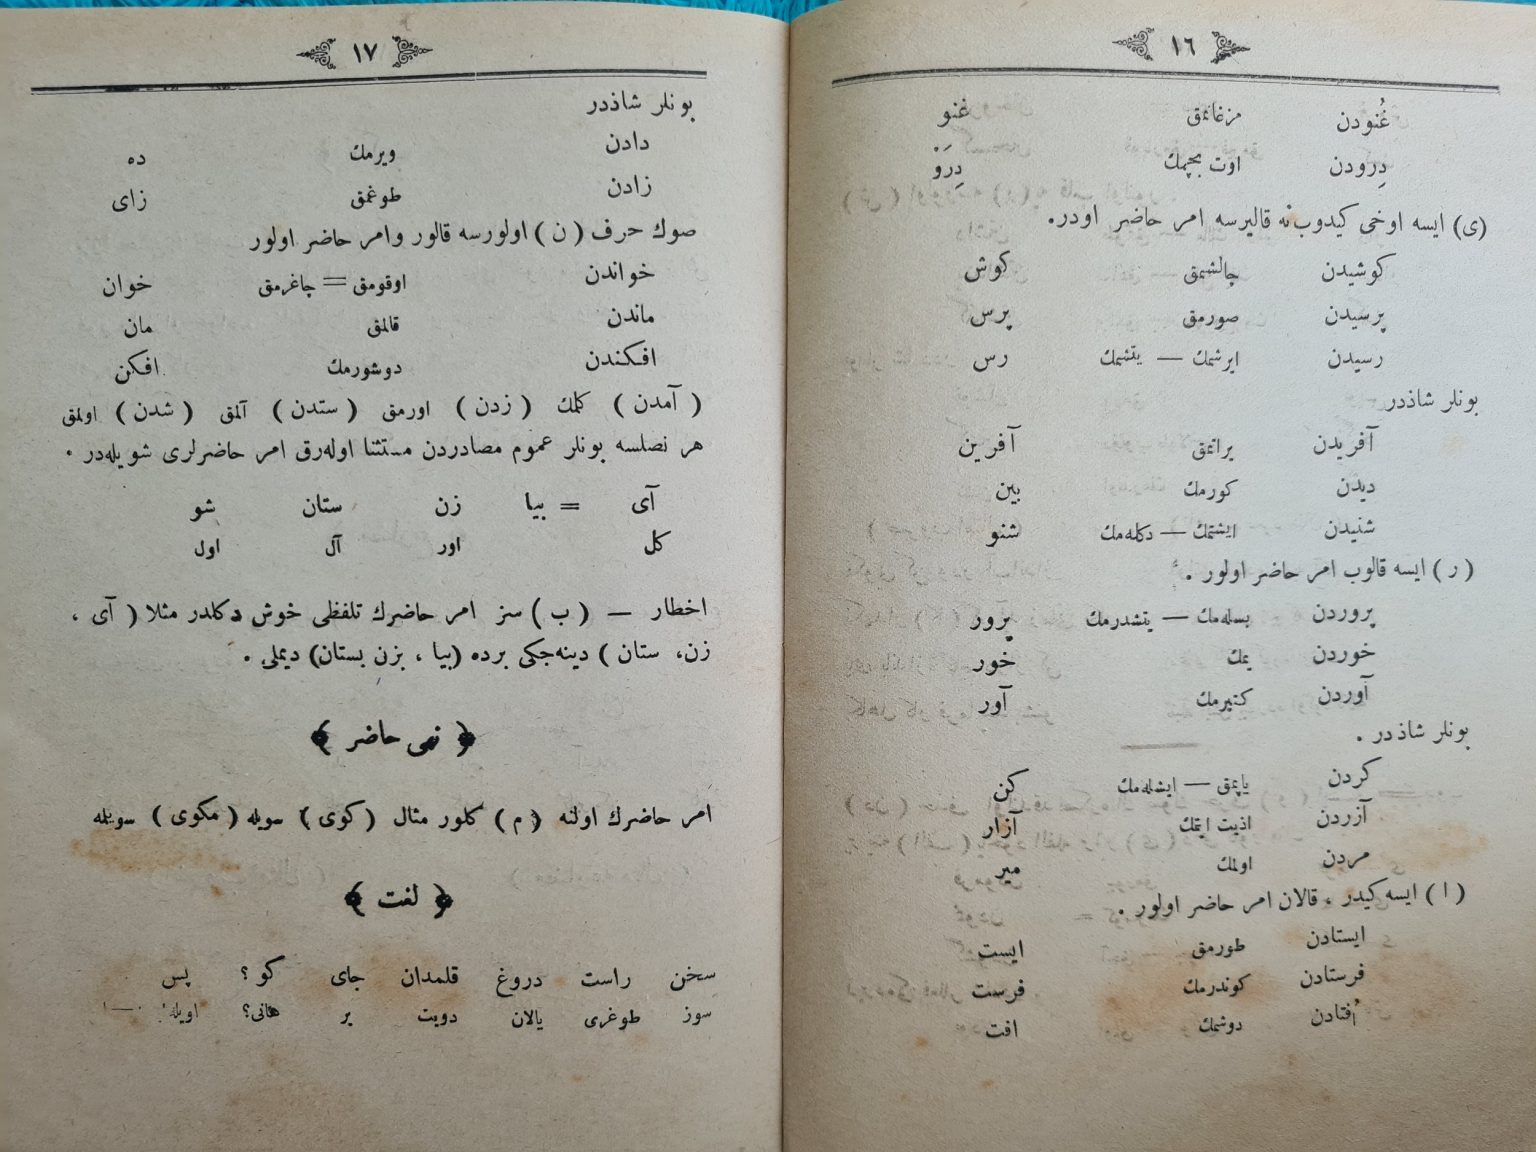 ١٦
غُنودن مزغانمق غنو
دِرودن اوت بچمك دِرَوْ
(ى) ايسه اوخى كيدوب نه قاليرسه امر حاضر اودر.
كوشيدن چالشمق كوش
پرسيدن صورمق پرس
رسيدن ايرشمك — يتشمك رس
بونلر شاذدر
آفريدن يراتمق آفرين
ديدن كورمك بين
شنيدن ايشتمك — دكله‌مك شنو
(ر) ايسه قالوب امر حاضر اولور .
پروردن بسله‌مك — يتشدرمك پرور
خوردن يمك خور
آوردن كتيرمك آور
بونلر شاذدر .
كردن ياپمق — ايشله‌مك كن
آزردن اذيت ايتمك آزار
مردن اولمك مير
(ا) ايسه كيدر ، قالان امر حاضر اولور .
ايستادن طورمق ايست
فرستادن كوندرمك فرست
اُفتادن دوشمك افت
١٧
بونلر شاذدر
دادن ويرمك ده
زادن طوغمق زاى
صوك حرف (ن) اولورسه قالور وامر حاضر اولور
خواندن اوقومق = چاغرمق خوان
ماندن قالمق مان
افكندن دوشورمك افكن
(آمدن) كلمك (زدن) اورمق (ستدن) آلمق (شدن) اولمق
هر نصلسه بونلر عموم مصادردن مستثنا اوله‌رق امر حاضرلرى شويله‌در .
آى = بيا زن ستان شو
كل اور آل اول
اخطار — (ب) سز امر حاضرك تلفظى خوش دكلدر مثلا (آى ،
زن، ستان) دينه‌جكى يرده (بيا ، بزن بستان) ديملى .
﴿ نهى حاضر ﴾
امر حاضرك اولنه (م) كلور مثال (كوى) سويله (مكوى) سويلمه
﴿ لغت ﴾
سخن راست دروغ قلمدان جاى كو ؟ پس
سوز طوغرى يالان دويت ير هانى؟ اويله